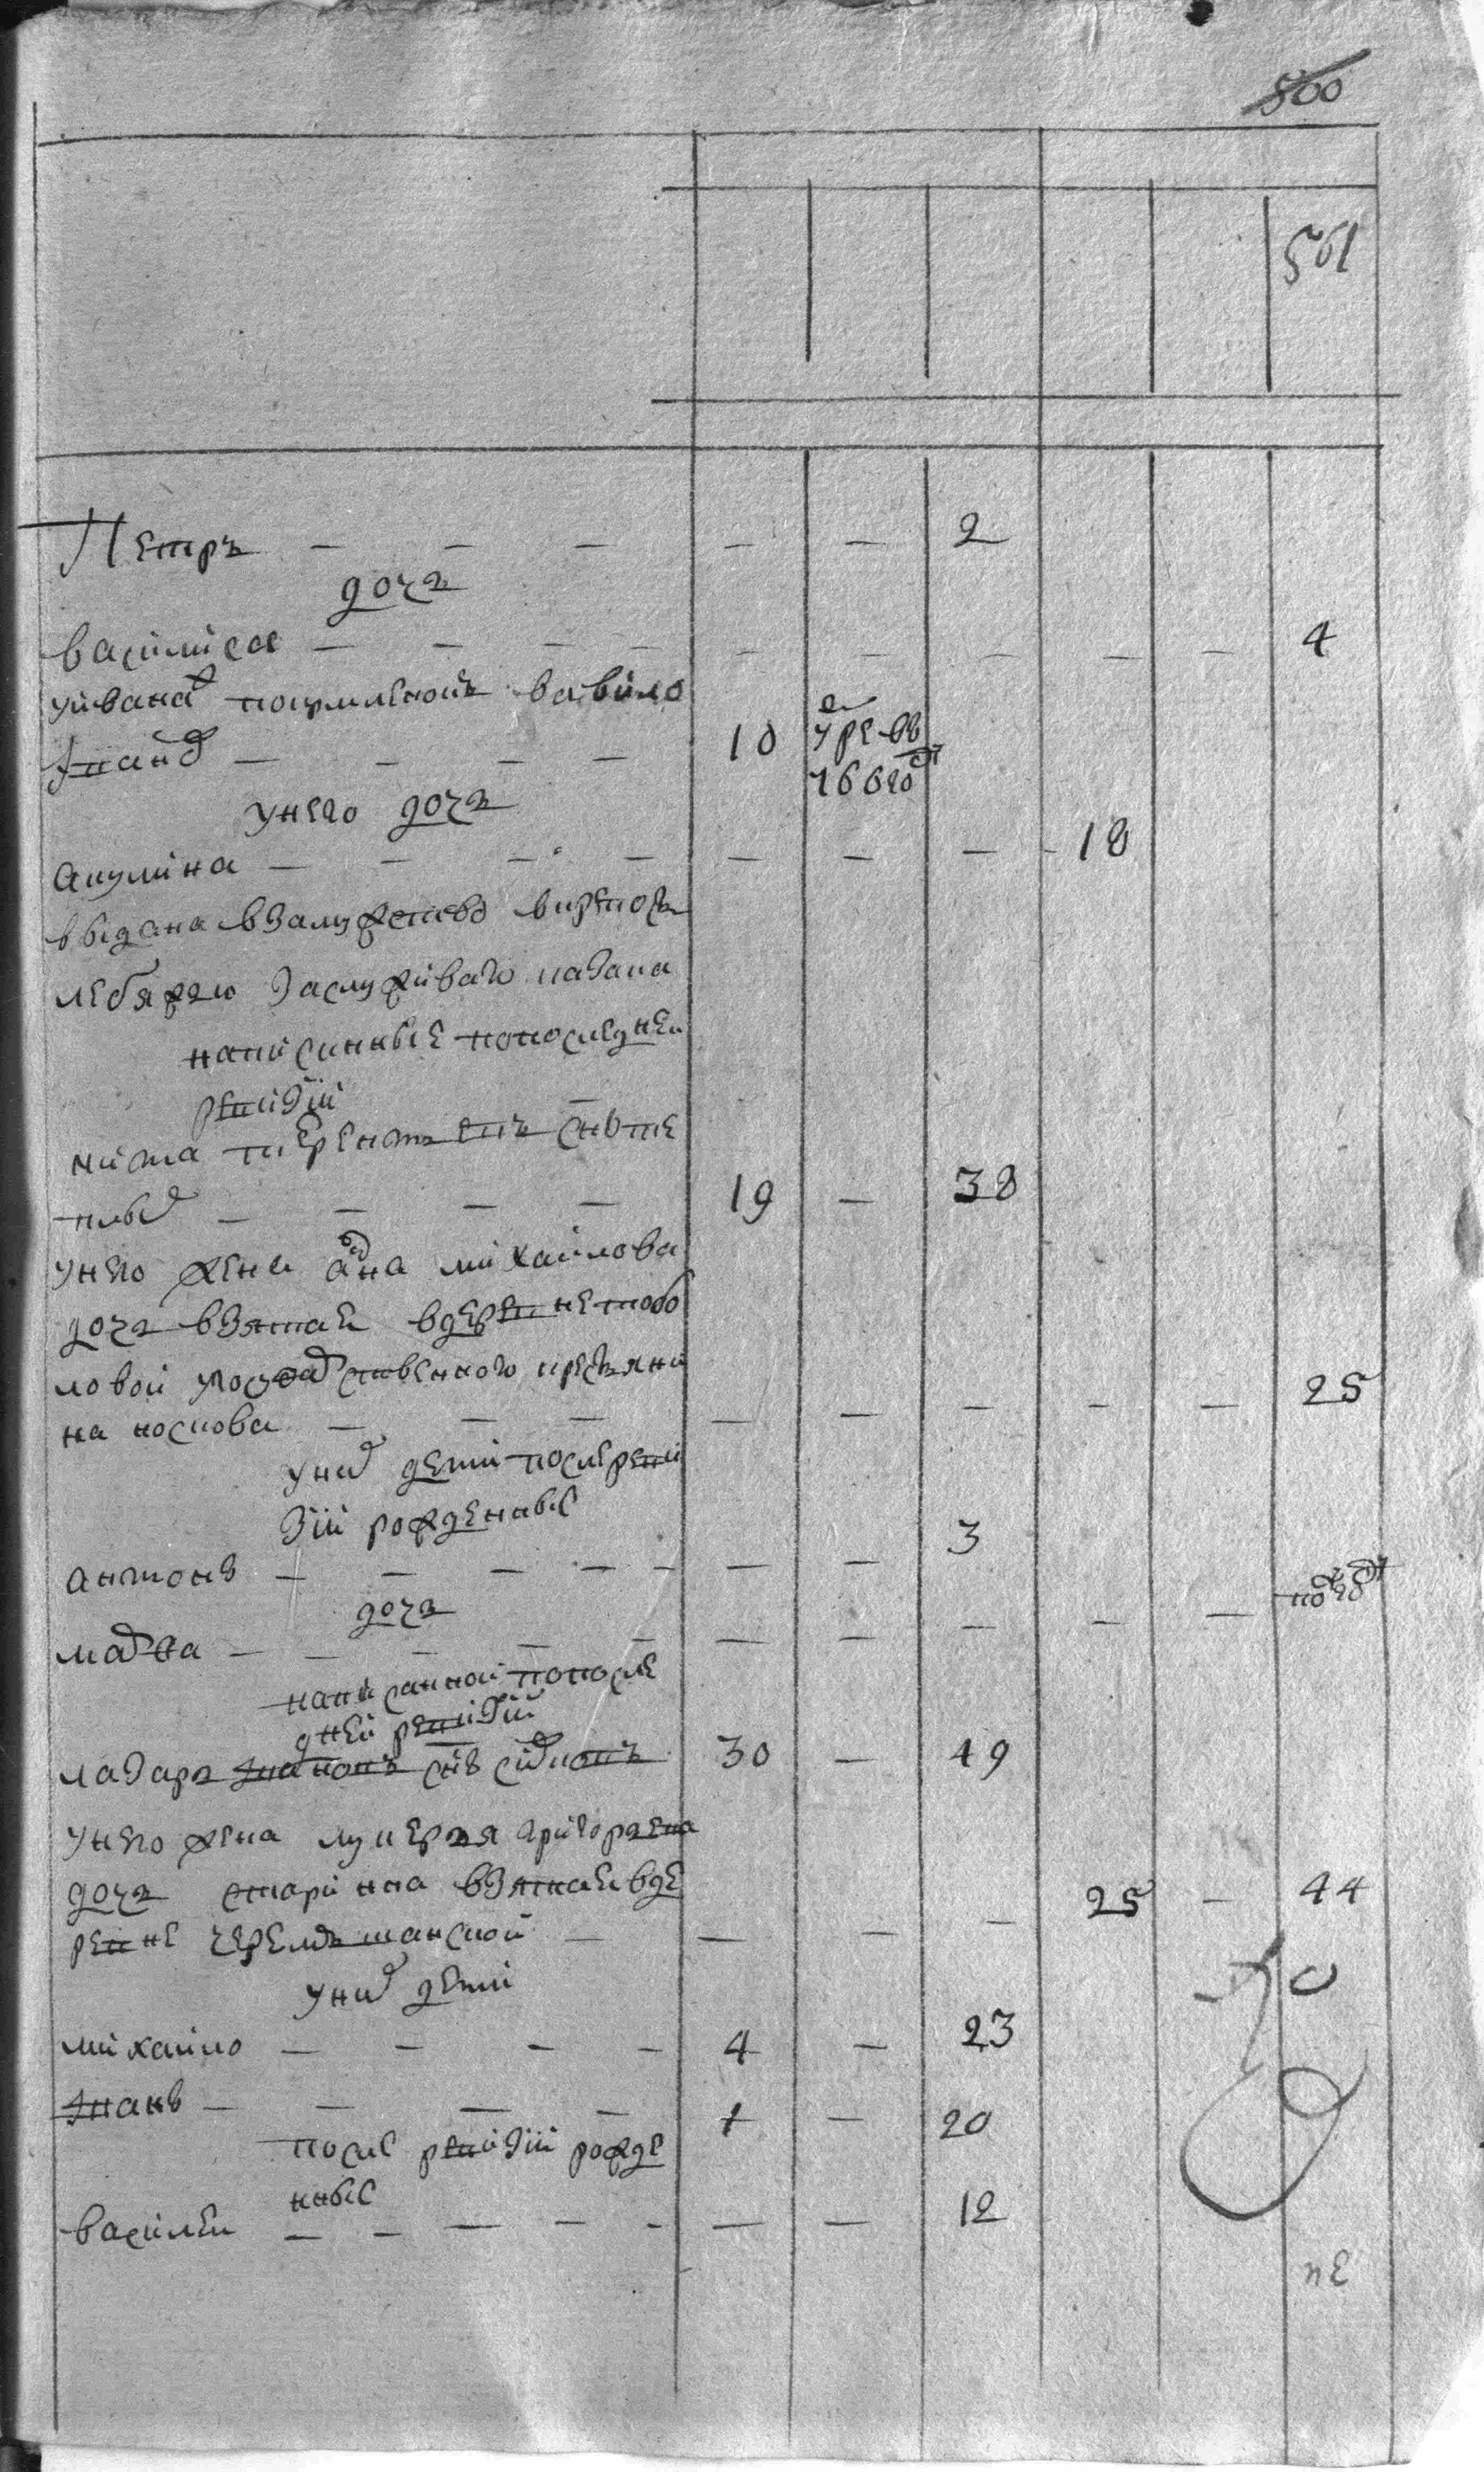 500
561
Петръ — — — — — 2
дочь
василиса — — — — — — — — — 4
уивана покрмленойъ вавило
иванъ — — — — 10 умре въ
766 год
унего дочь
акулина — — — — — — — 18
выдана взамужство вкрепость
лебяжью заслуживаго казака
написанные попоследнеи
ревизїи
никита терентьевъ снъ пе
— — — — 19 — 38
унего жена анна михайлова
дочь взятая вдеревне тобо
ловой угосударственного крестьяни
на носкова — — — — — — — — 25
уних дети послереви
зїи рожденные
антонъ — — — — — — — 3
дочь
марѳа — — — — — — — — — полгод
написанной попосле
дней ревизїи
лазарь ивановъ снъ 30 — 49
унего жена лукерья григорьева
дочь старинна взятая вде
ревне черемшанской — — — — 25 — 44
уних дети
михайло — — — — 4 — 23
иванъ — — — — 1 — 20
после ревизїи рожде
нные
василеи — — — — — — — 12